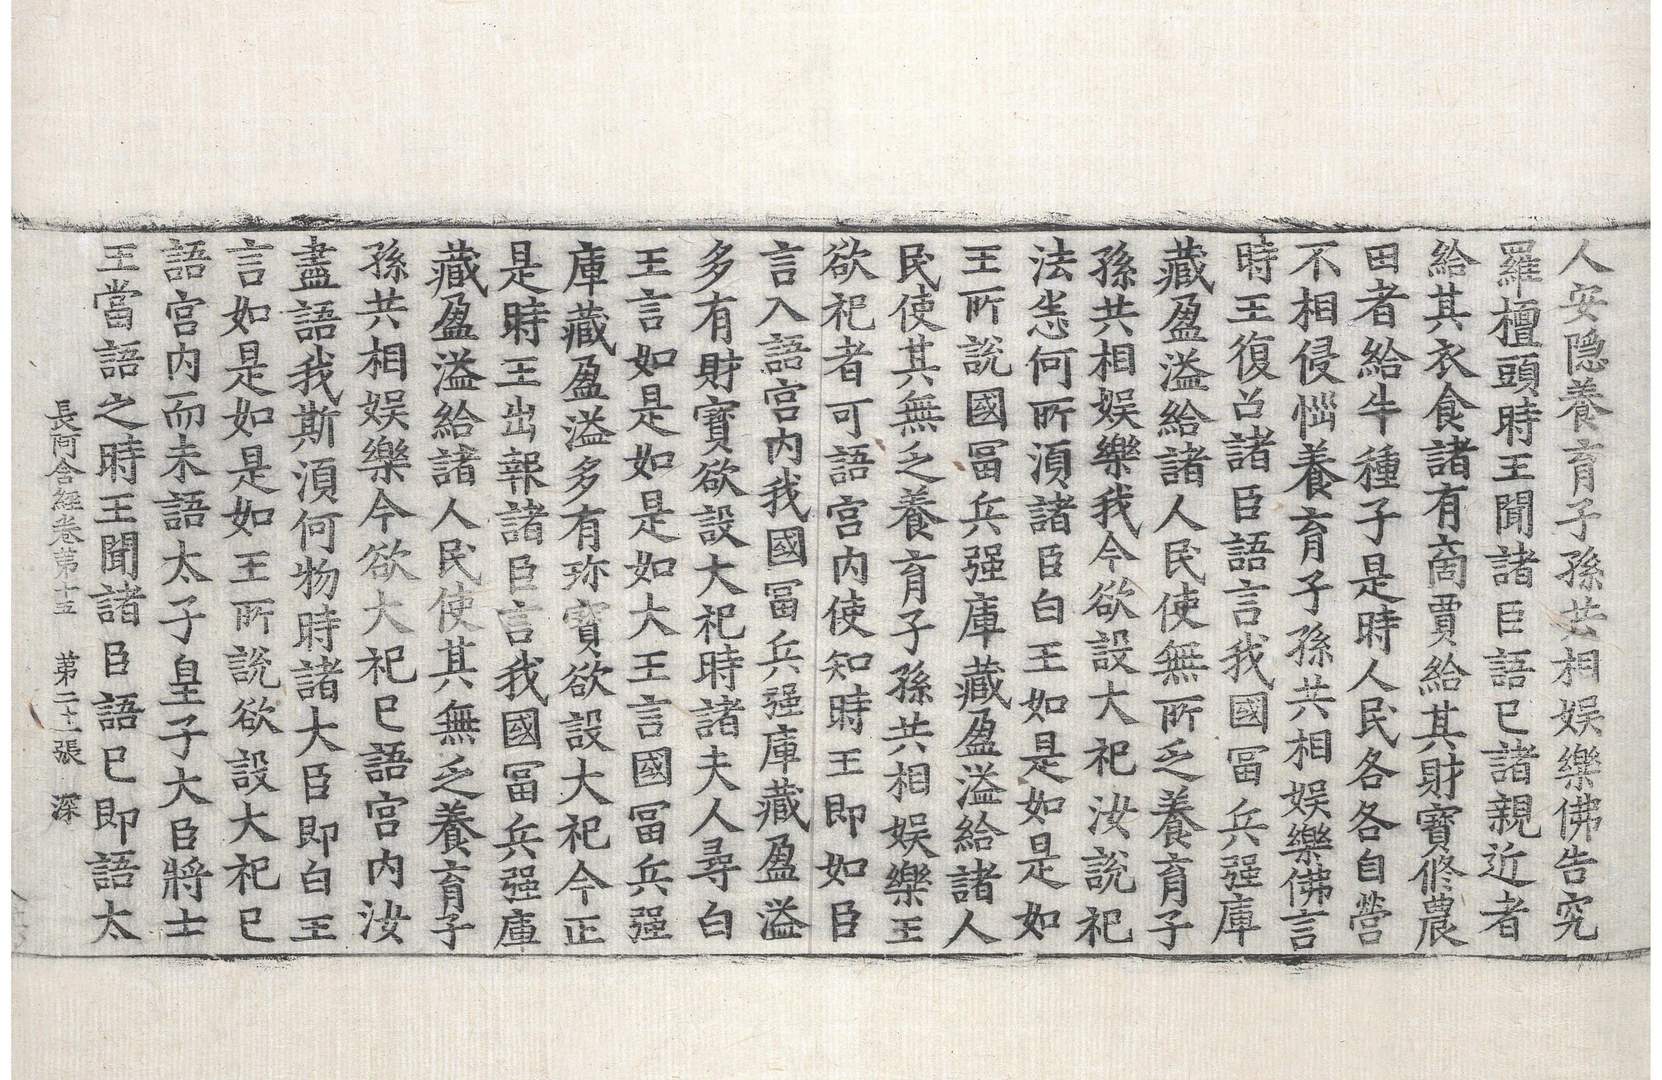 人安隐養育子孫共相娛樂佛告究
羅檀頭時王聞諸臣語已諸親近者
給其衣食諸有啇賈給其財寶修農
田者給牛種子是時人民各各自營
不相侵惱養育子孫共相娛樂佛言
時王復召諸臣語言我國冨兵强庫
藏盈溢給諸人民使無所乏養育子
孫共相娛樂我今欲設大祀汝說祀
法悉何所湏諸臣白王如是如是如
王所說國冨兵强庫藏盈溢給諸人
民使其無乏養育子孫共相娛樂王
欲祀者可語宮内使知時王即如臣
言入語宮内我國冨兵强庫藏盈溢
多有財寳欲設大祀時諸夫人尋白
王言如是如是如大王言國冨兵强
庫藏盈溢多有珎寳欲設大祀今正
是時王出報諸臣言我國冨兵强庫
藏盈溢給諸人民使其無乏養育子
孫共相娛樂今欲大祀已語宮内汝
盡語我斯湏何物時諸大臣即白王
言如是如是如王所說欲設大祀已
語宮内而未語太子皇子大臣將士
王當語之時王聞諸臣語已即語太
長阿含經卷第十五　第二十一張　深